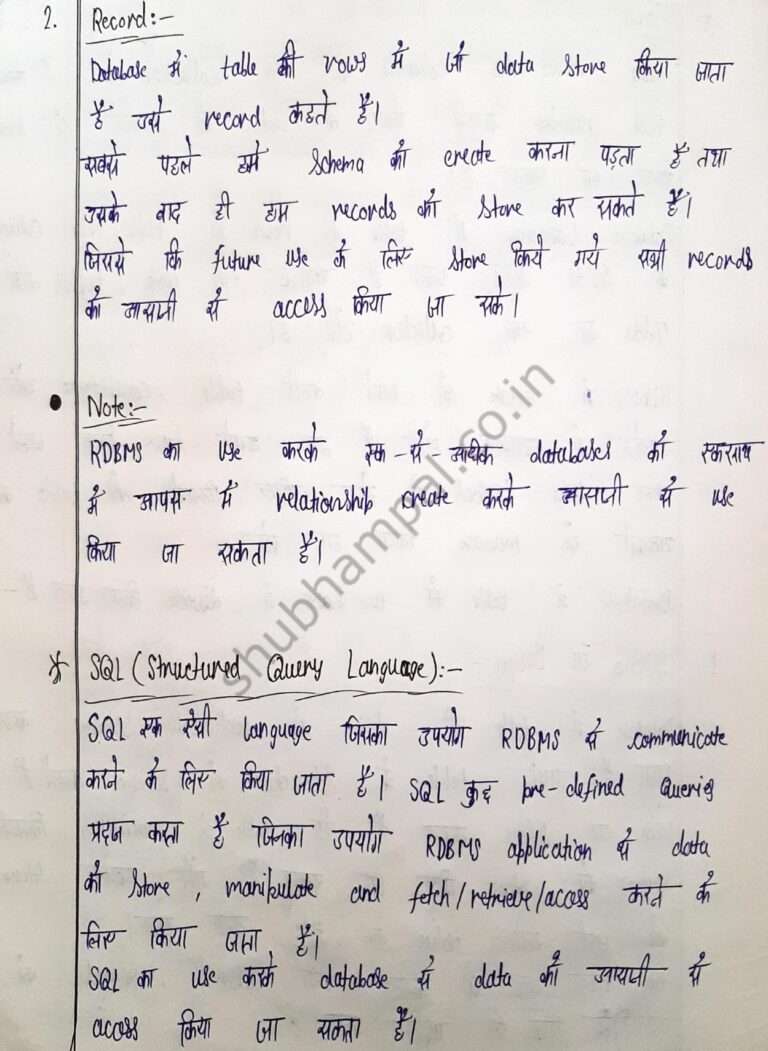 2. Record:-
Database में table की rows में जो data store किया जाता
है उसे record कहते हैं।
सबसे पहले हमें Schema को create करना पड़ता है तथा
उसके बाद ही हम records को store कर सकते हैं।
जिससे कि future use के लिए store किये गये सभी records
को आसानी से access किया जा सके।
• Note:-
RDBMS का use करके एक-से-अधिक databases को एकसाथ
में आपस में relationship create करके आसानी से use
किया जा सकता है।
* SQL (Structured Query Language):-
SQL एक ऐसी language जिसका उपयोग RDBMS से communicate
करने के लिए किया जाता है। SQL कुछ pre-defined Queries
प्रदान करता है जिनका उपयोग RDBMS application से data
को store, manipulate and fetch/retrieve/access करने के
लिए किया जाता है।
SQL का use करके database से data को आसानी से
access किया जा सकता है।
shubhampal.co.in